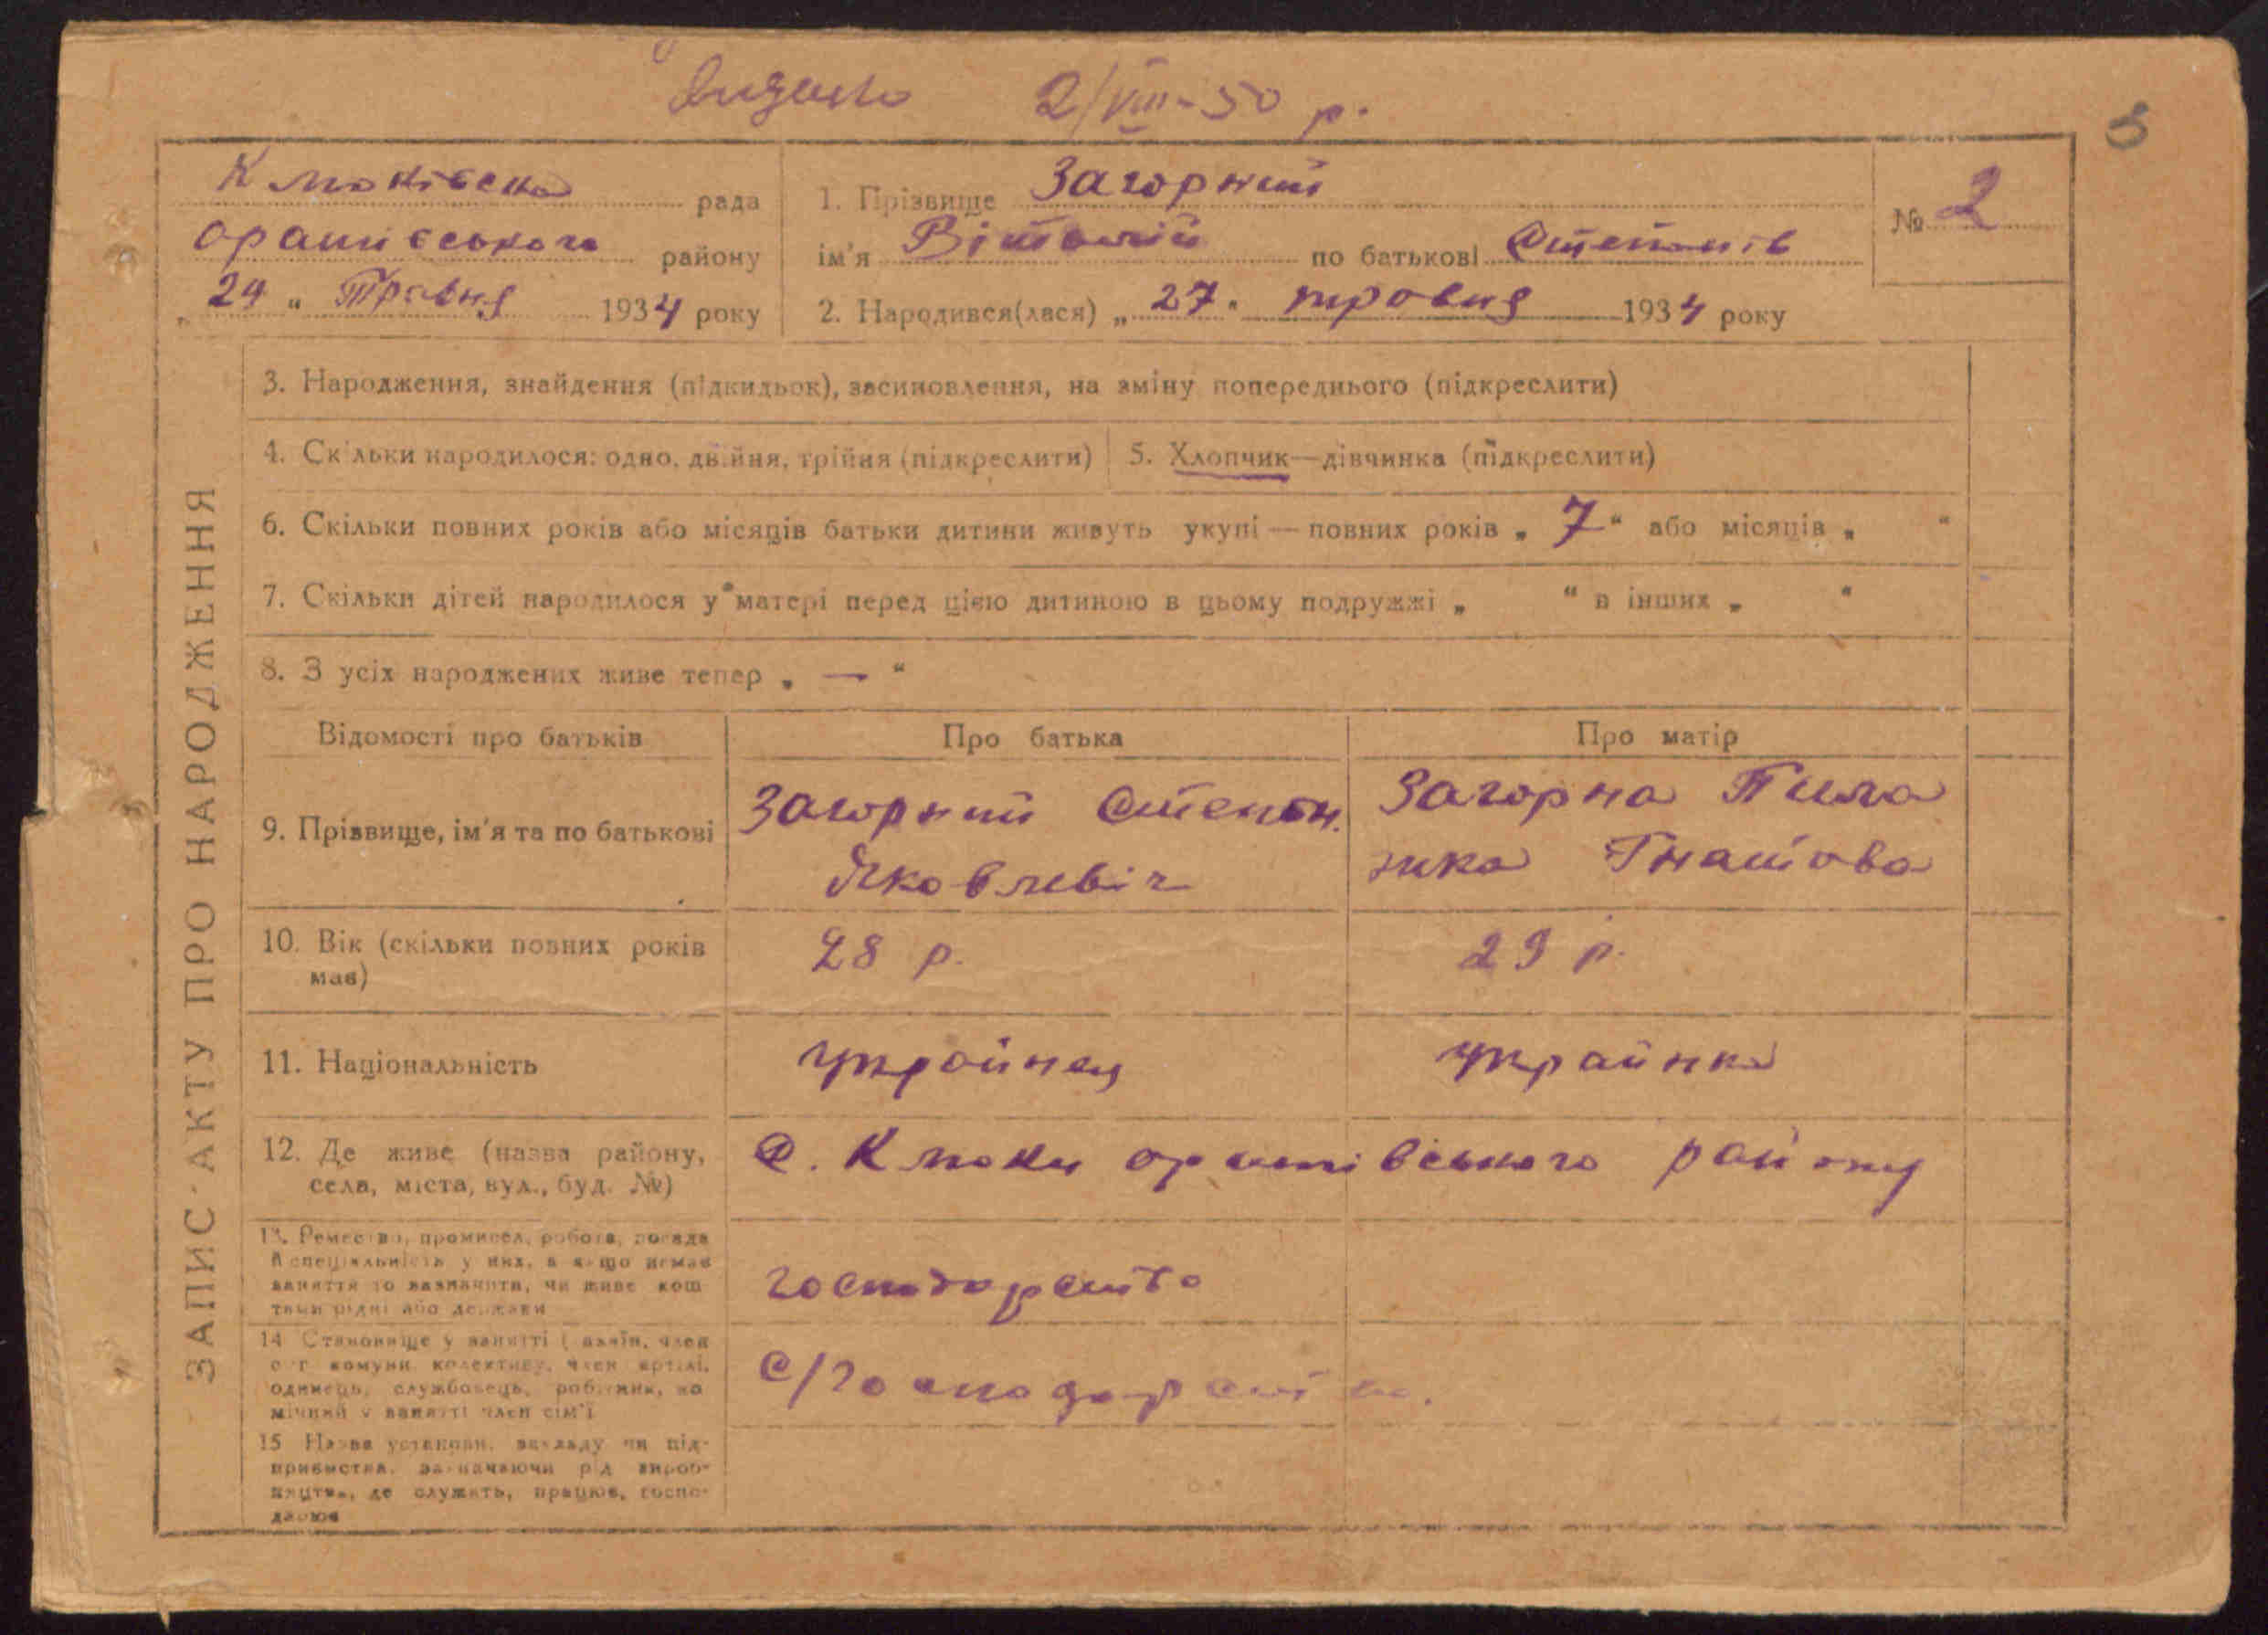 Видано 2/VIII-50 р.
3
Клюківська рада
оратівського району
„ 24 “ Травня 1934 року
1. Прізвище Загорний
ім'я Віталій по батькові Степанів
2. Народився(лася) „ 27 “ травня 1934 року
№ 2
ЗАПИС АКТУ ПРО НАРОДЖЕННЯ
3. Народження, знайдення (підкидьок), засиновлення, на зміну попереднього (підкреслити)
4. Скільки народилося: одно, двійня, трійня (підкреслити)
5. Хлопчик—дівчинка (підкреслити)
6. Скільки повних років або місяців батьки дитини живуть укупі — повних років „ 7 “ або місяців „ “
7. Скільки дітей народилося у матері перед цією дитиною в цьому подружжі „ “ в інших „ “
8. З усіх народжених живе тепер „ — “
Відомості про батьків
Про батька
Про матір
9. Прізвище, ім'я та по батькові
Загорний Степан.
Яковлевіч
Загорна Пила
жка Гнатова
10. Вік (скільки повних років
має)
28 р.
29 р.
11. Національність
украйнец
украйнка
12. Де живе (назва району,
села, міста, вул., буд. №)
С. Клюки оратівського району
13. Ремество, промисел, робота, посада
й спеціяльність у них, а якщо немає
заняття то зазначити, чи живе кош
тами рідні або держави
господарство
14 Становище у занятті ( хазяїн, член
с-г комуни, колективу, член артілі,
одинець, службовець, робітник, по
мічний у занятті член сім'ї
с/господарстве.
15 Назва установи, закладу чи під-
приємства, зазначаючи рід вироб-
ництва, де служить, працює, госпо-
дарює